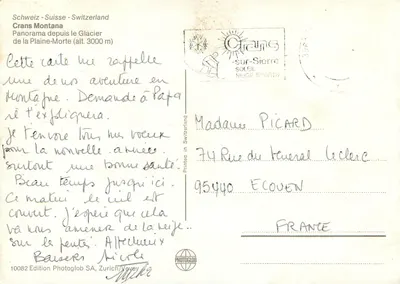 Schweiz - Suisse - Switzerland
Crans Montana
Panorama depuis le Glacier
de la Plaine-Morte (alt. 3000 m)
Cette carte me rappelle
une de nos aventure en
Montagne. Demande à Papa
il t'expliquera.
Je t'envoie tous mes voeux
pour la nouvelle année.
surtout une bonne santé.
Beau temps jusqu'ici.
Ce matin le ciel est
couvert. J'espère que cela
va nous amener de la neige
sur les pentes. Affectueux
Baisers Nicole
10082 Edition Photoglob SA, Zurich
Printed in Switzerland
Crans
sur-Sierre
Madame PICARD
74 Rue du General Leclerc
95440 ECOUEN
FRANCE
PHOTOGLOB